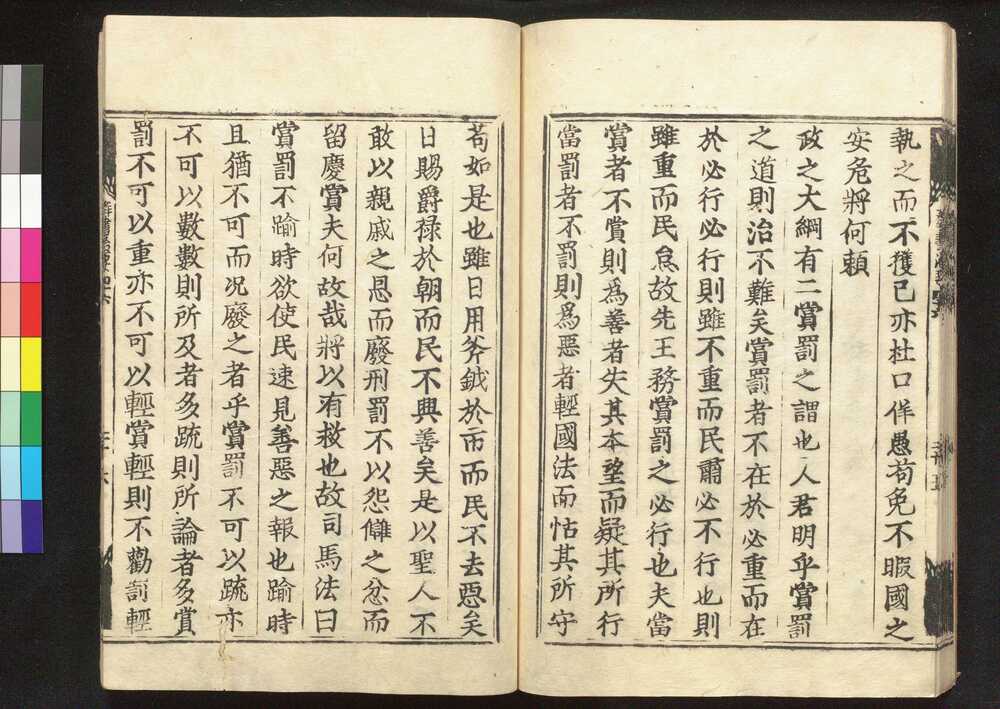 執之而不獲已亦杜口佯愚苟免不暇國之
安危將何頼
政之大綱有二賞罰之謂也人君明乎賞罰
之道則治不難矣賞罰者不在於必重而在
於必行必行則雖不重而民肅必不行也則
雖重而民怠故先王務賞罰之必行也夫當
賞者不賞則為善者失其本望而疑其所行
當罰者不罰則為惡者輕國法而怙其所守
苟如是也雖日用斧鉞於市而民不去惡矣
日賜爵祿於朝而民不興善矣是以聖人不
敢以親戚之恩而廢刑罰不以怨讎之忿而
留慶賞夫何故哉將以有救也故司馬法曰
賞罰不踰時欲使民速見善惡之報也踰時
且猶不可而况廢之者乎賞罰不可以䟽亦
不可以數數則所及者多䟽則所論者多賞
罰不可以重亦不可以輕賞輕則不勸罰輕